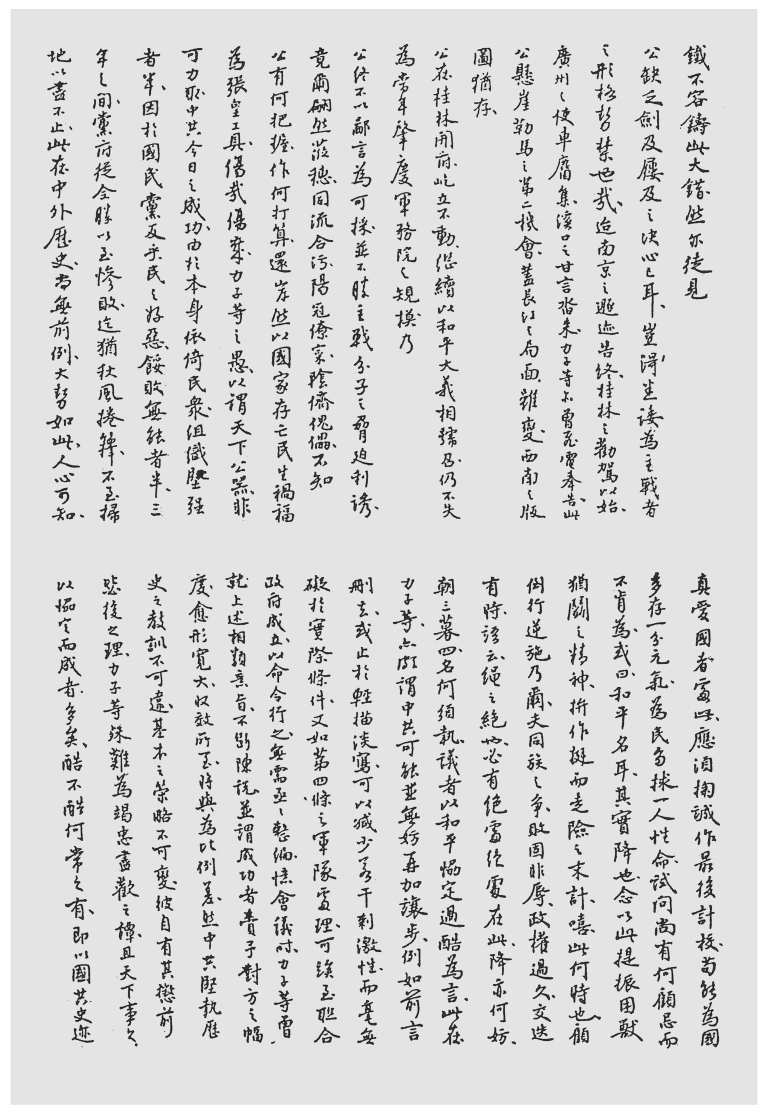 鐵不容鑄此大錯。然亦徒見
公缺乏劍及屨及之決心已耳、豈得坐諉為主戰者
之形格勢禁也哉。迨南京之遯迹告終、桂林之勸駕以始。
廣州之使車麕集、溪口之甘言沓來。力子等亦曾飛電奉告、此
公懸崖勒馬之第二機會。蓋長江之局面雖變、西南之版
圖猶存、
公在桂林開府、屹立不動、繼續以和平大義相號召、仍不失
為當年肇慶軍務院之規模。乃
公終不以鄙言為可採、並不勝主戰分子之脅迫利誘、
竟爾翩然蒞穗、同流合污、陽冠僚寀、陰儕傀儡。不知
公有何把握、作何打算。還岸然以國家存亡民生禍福
為張皇工具。傷哉傷哉。力子等之愚、以謂天下公器、非
可力取、中共今日之成功、由於本身依倚民衆、組織堅强
者半、因於國民黨反乎民之好惡、餒敗無能者半、三
年之間、黨府從全勝以至慘敗、迄猶秋風捲籜、不至掃
地以盡不止、此在中外歷史、尚無前例。大勢如此、人心可知。
真愛國者處此、應湏掬誠作最後計校、苟能為國
多存一分元氣、為民多捄一人性命、試問尚有何顧忌而
不肯為。或曰、和平名耳、其實降也。念以此提振困獸
猶鬭之精神、拚作挺而走險之末計。嘻此何時也、顧
倒行逆施乃爾。夫同族之爭、敗固非辱、政權過久、交迭
有時。語云、繩之絕也、必有絕處、絕處在此、降亦何妨。
朝三暮四、名何須執。議者以和平協定過酷為言、此在
力子等、亦頗謂中共可能並無妨再加讓步、例如前言
刪去或止於輕描淡寫、可以減少若干刺激性、而毫無
礙於實際條件。又如第四條之軍隊處理、可俟至聯合
政府成立、以命令行之、無需亟亟整編。憶會議時、力子等曾
就上述相類意旨、不斷陳說、並謂成功者責予對方之幅
度愈形寬大、收效所至、時與為比例差。然中共堅執歷
史之教訓不可違、基本之策略不可變、彼自有其懲前
毖後之理、力子等殊難為竭忠盡歡之譚。且天下事、久
以協定而成者多矣、酷不酷何常之有、即以國共史迹